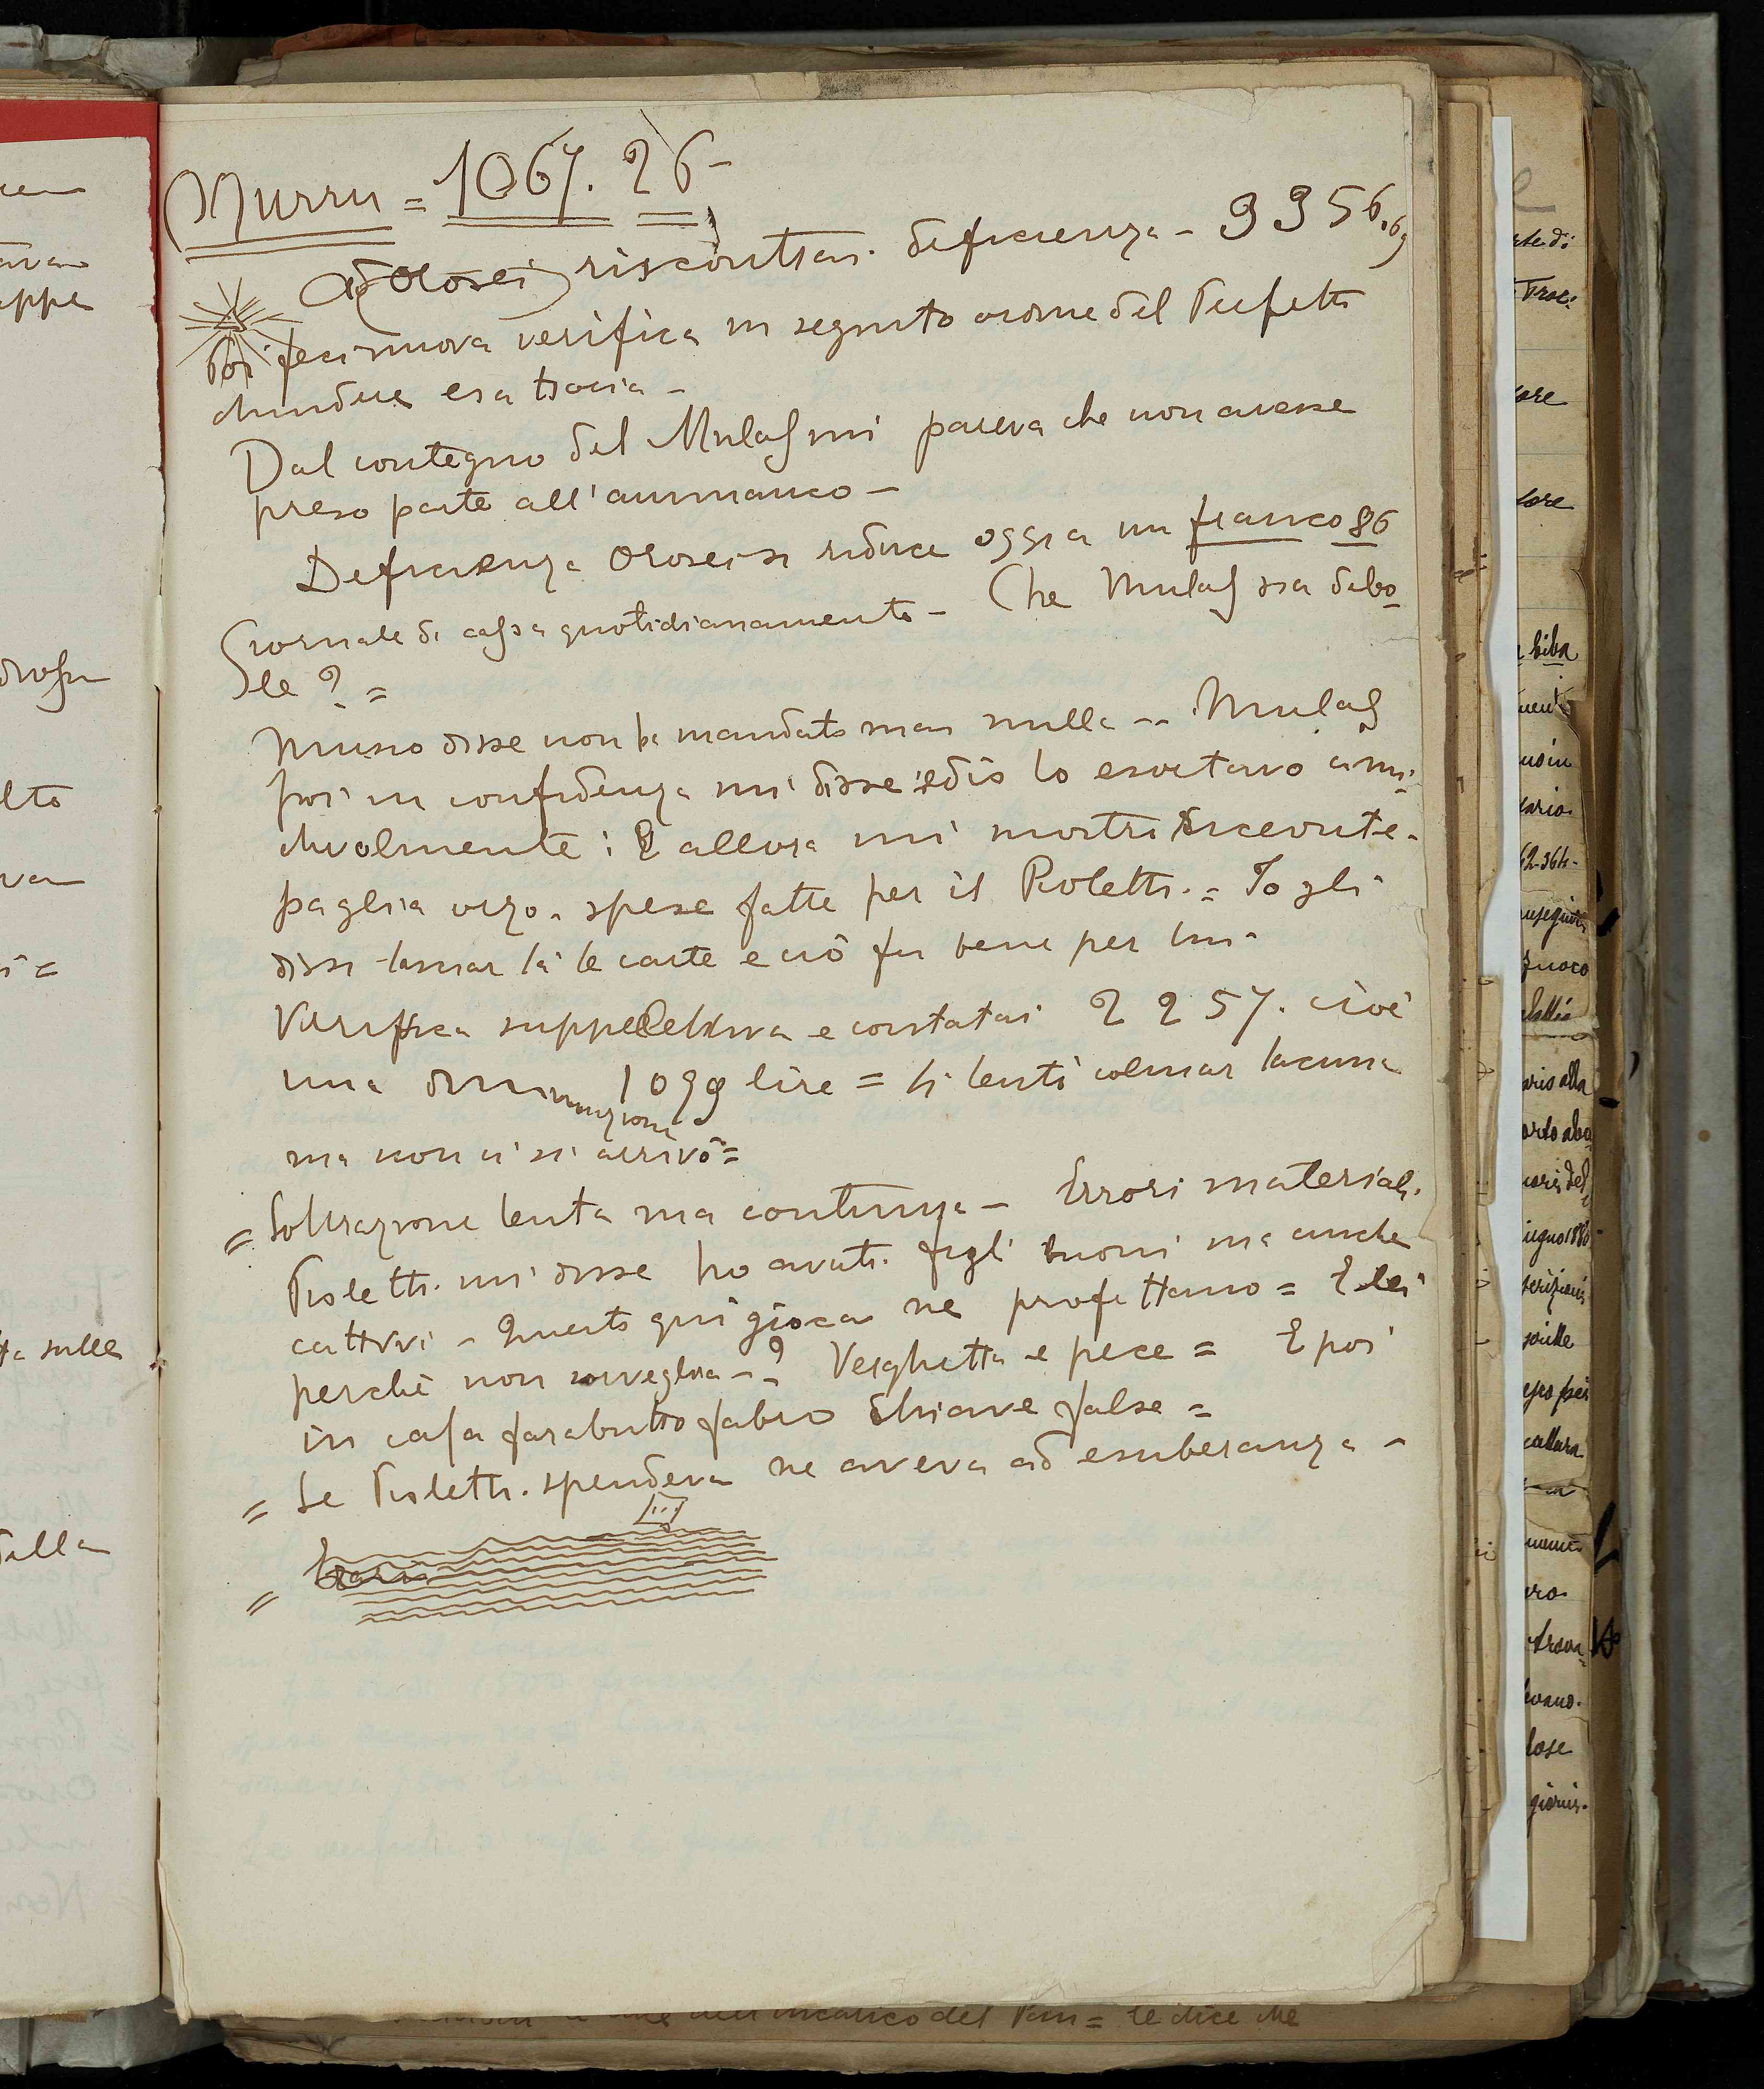 Murru = 1067. 26 -
Ad Orosei riscontrai deficienza - 3356.69
Poi feci nuova verifica in seguito ordine del Prefetto
chiudere esattoria -
Dal contegno del Mulas mi pareva che non avesse
preso parte all'ammanco -
Deficienza Orosei si riduce oggi a un franco 86
Giornale di cassa quotidianamente - Che Mulas sia debo-
le ? =
Musio disse non ha mandato mai nulla -- Mulas
poi in confidenza mi disse: ed io lo esortavo ami-
chevolmente: E allora mi mostri ricevute -
paglia orzo. spese fatte per il Pioletti. = Io gli
dissi lasciar là le carte e ciò fu bene per lui.
Verifica suppelletiva e constatai 2257. cioè
una diminuzione 1099 lire = Si tentò colmar lacuna
ma non ci si arrivò =
= Sottrazione lenta ma continua - Errori materiali.
Pioletti. mi disse ho avuti figli buoni ma anche
cattivi - Questo qui gioca ne profittano = E lei
perchè non sorveglia - ? Verghetta e pece = E poi
in casa farabutto fabro Chiave false =
= Se Pioletti. spendeva ne aveva ad esuberanza -
=